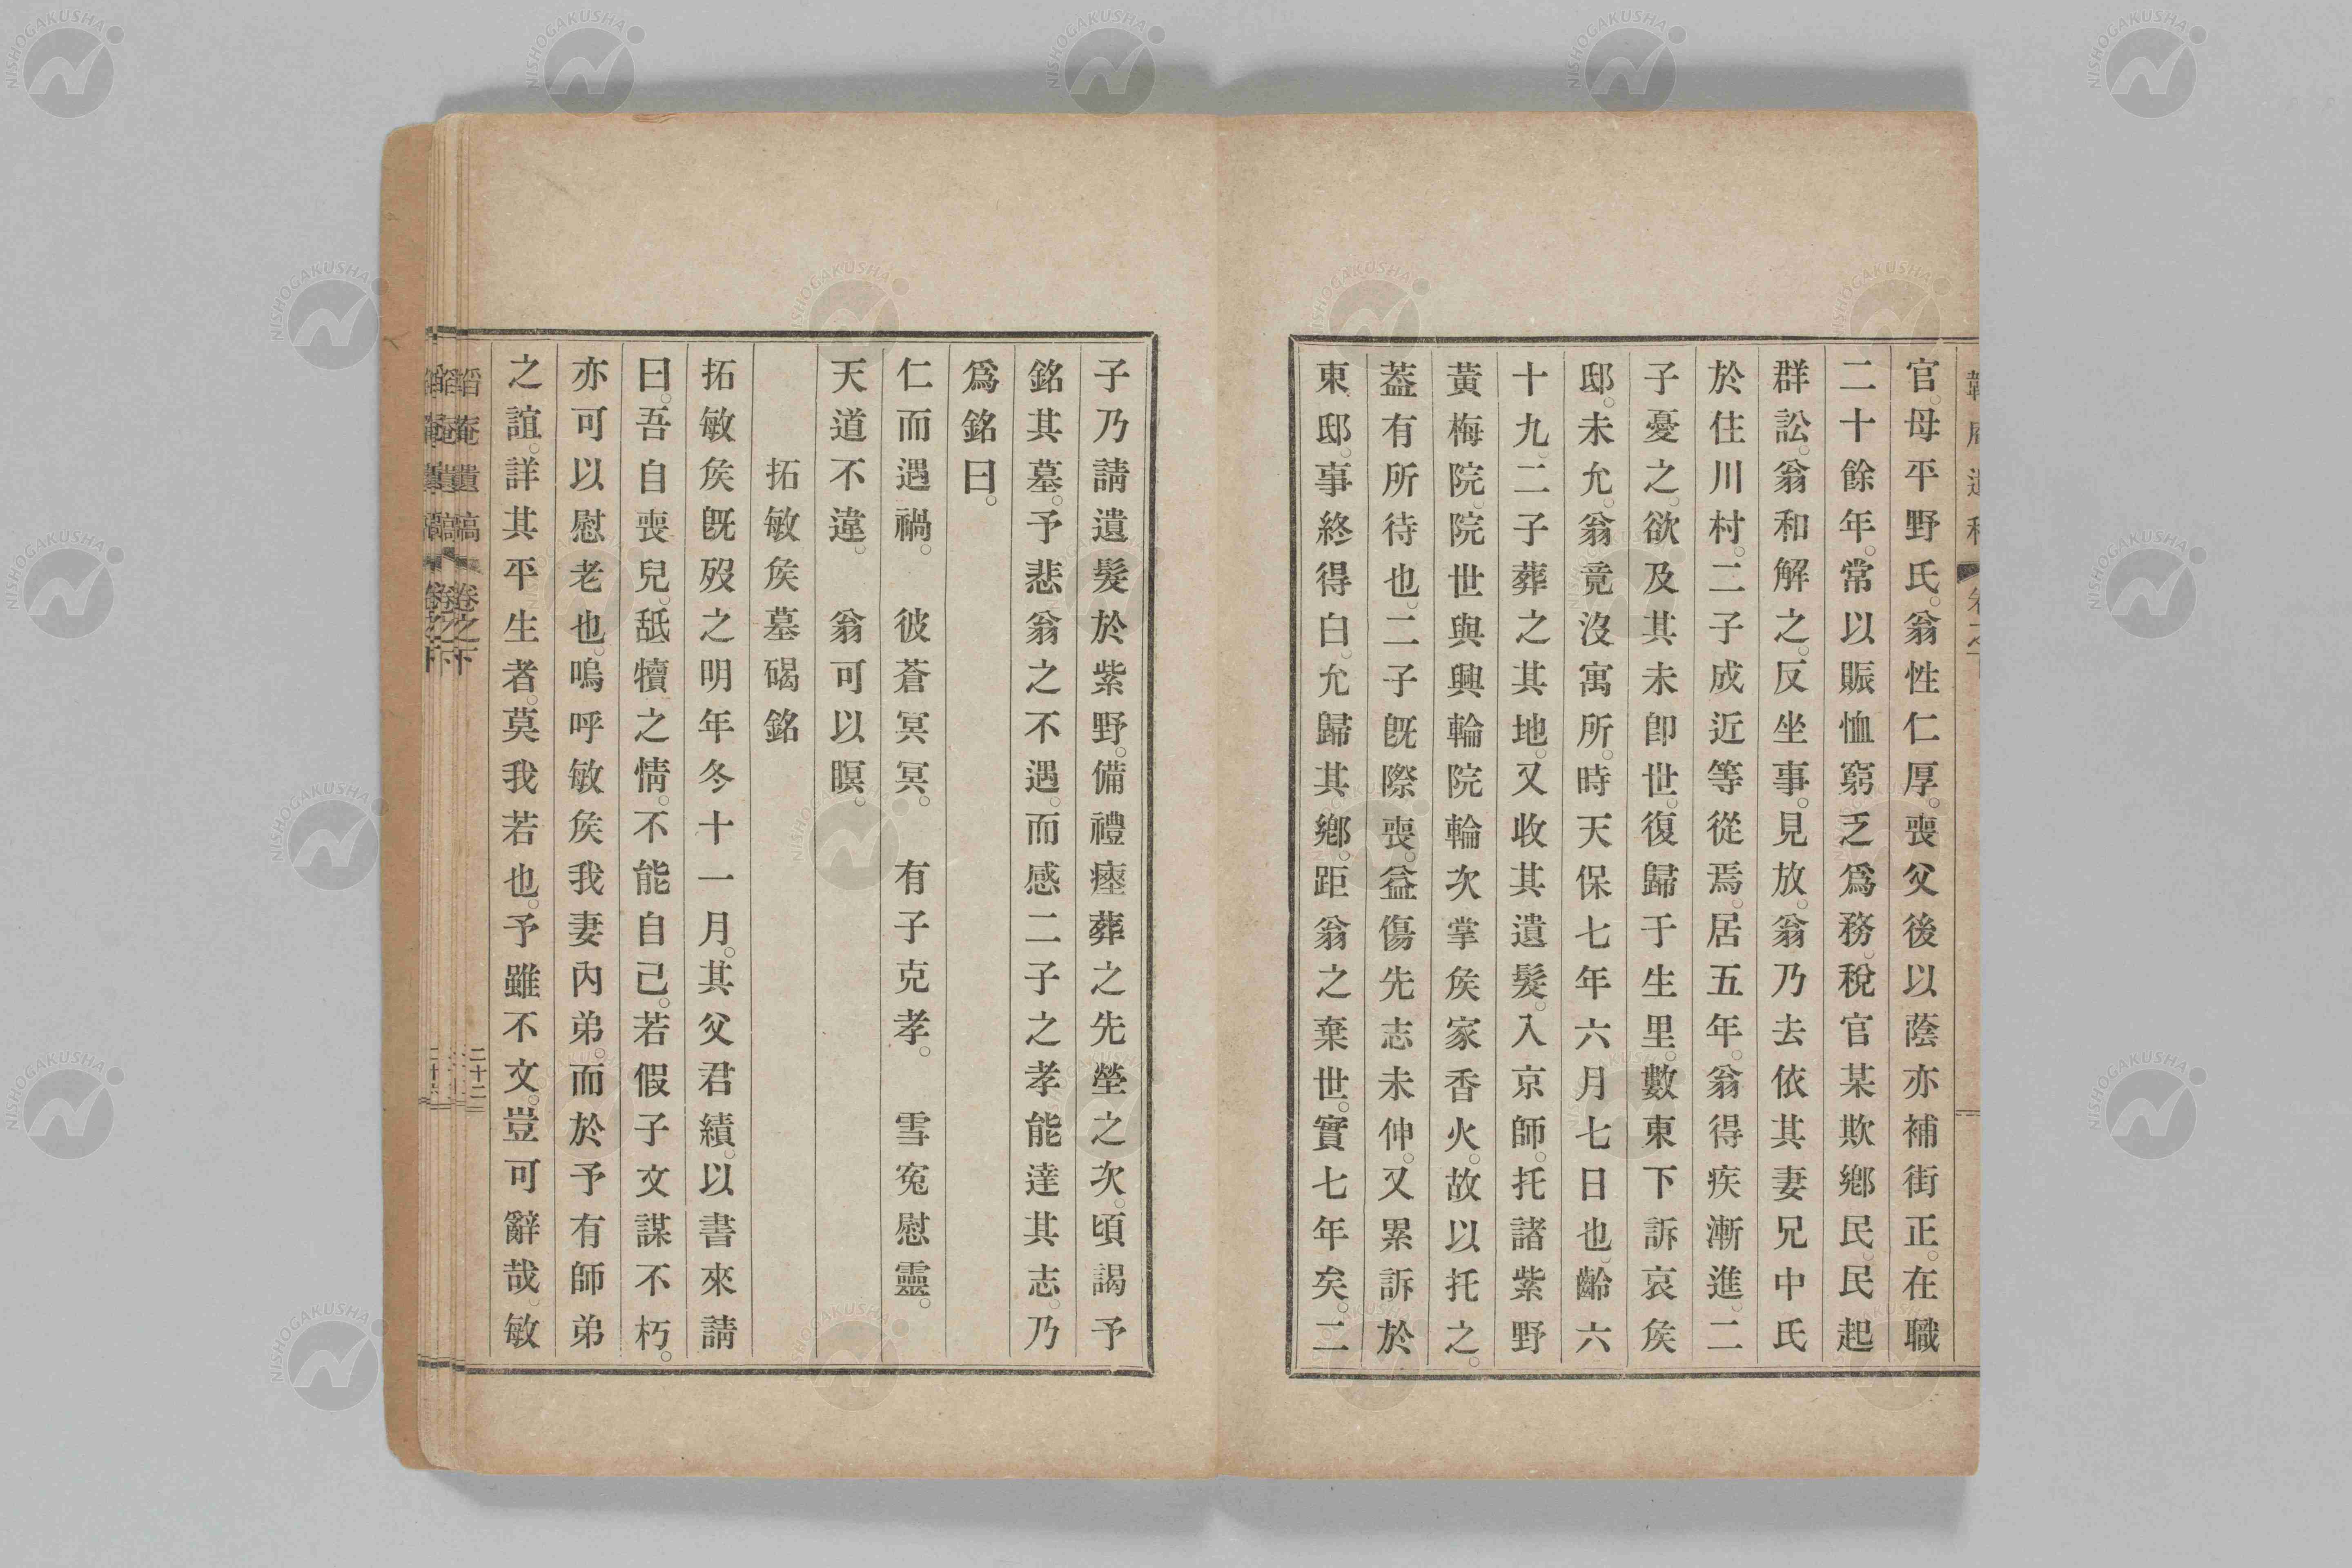 官。母平野氏。翁性仁厚。喪父後以蔭亦補街正。在職
二十餘年。常以賑恤窮乏爲務。稅官某欺鄉民。民起
群訟。翁和解之。反坐事。見放。翁乃去依其妻兄中氏
於住川村。二子成近等從焉。居五年。翁得疾漸進。二
子憂之。欲及其未卽世。復歸于生里。數東下訴哀矦
邸。未允。翁竟沒寓所。時天保七年六月七日也。齡六
十九。二子葬之其地。又收其遺髮。入京師。托諸紫野
黃梅院。院世與興輪院輪次掌矦家香火。故以托之。
蓋有所待也。二子旣際喪。益傷先志未伸。又累訴於
東邸。事終得白。允歸其鄉。距翁之棄世。實七年矣。二
子乃請遺髮於紫野。備禮瘞葬之先塋之次。頃謁予
銘其墓。予悲翁之不遇。而感二子之孝能達其志。乃
爲銘曰。
仁而遇禍。　彼蒼冥冥。　有子克孝。　雪寃慰靈。
天道不違。　翁可以瞑。
拓敏矦墓碣銘
拓敏矦旣歿之明年冬十一月。其父君績。以書來請
曰。吾自喪兒。舐犢之情。不能自己。若假子文謀不朽。
亦可以慰老也。嗚呼敏矦我妻內弟。而於予有師弟
之誼。詳其平生者。莫我若也。予雖不文。豈可辭哉。敏
韜菴遺稿　卷之下　二十二
NISHOGAKUSHA